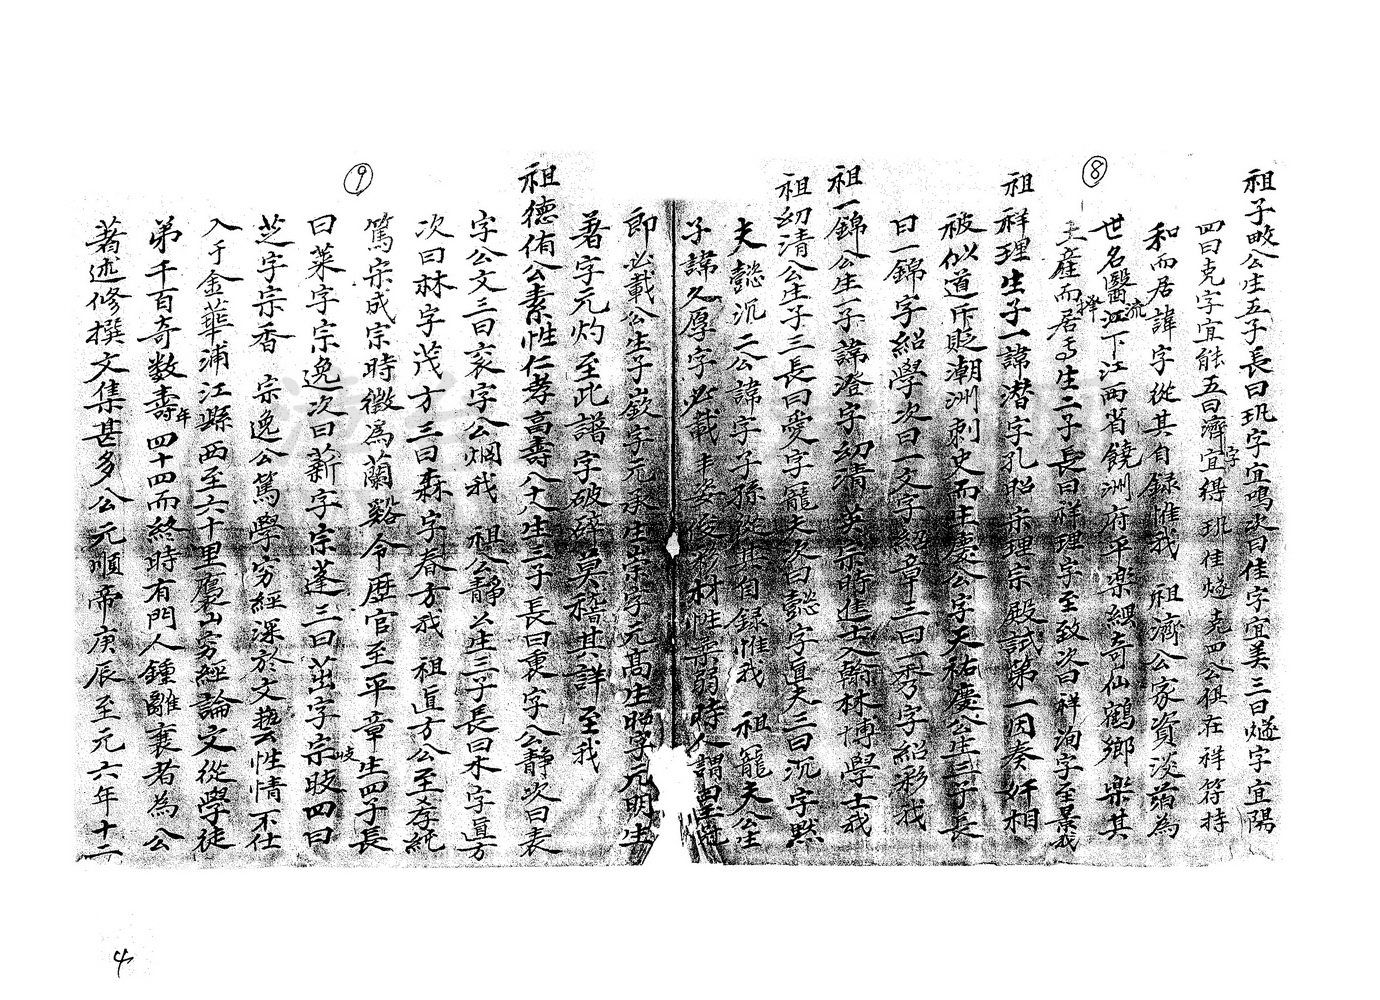 ⑧
祖子畋公生五子長曰玑字宜鳴次曰佳字宜美三曰燧字宜陽
四曰克字宜能五曰濟字宜得 玑佳燧堯四公俱在祥符持
和而居諱字從其自録惟我 祖濟公家資淡薄為
世名醫流江下江西省饒洲府平樂縣奇仙鶴鄉樂其
土産而擇居焉生二子長曰祥理字至致次曰祥洵字至景我
祖祥理生子一諱潜字孔昭宗理宗殿試第一因奏奸相
被似道斥貶潮洲刺史而生慶公字天祐慶公生三子長
曰一錦字紹學次曰一文字紹章三曰一秀字紹彩我
祖一錦公生一子諱澄字幼清 英宗時進士入翰林博學士我
祖幼清公生子三長曰愛字寵夫次曰懿字真夫三曰沉字默
夫懿沉二公諱字子孫從其自録惟我 祖寵夫公生
子諱久厚字必載丰姿俊核材性柔弱時人謂
⑨
即必載公生子嶔字元承生宗字元高生昭字元明生
著字元灼至此譜字破碎莫稽其詳 至我
祖德侑公素性仁孝高壽八十八生三子長曰裏字公靜次曰表
字公文三曰亥字公烱我 祖公靜公生三子長曰木字真方
次曰林字茂方三曰森字春方我 祖真方公至孝純
篤宗成宗時徵為蘭谿令歷官至平章生四子長
曰菜字宗逸次曰薪字宗蓬三曰茁字宗岐四曰
芝字宗香 宗逸公篤學穷經深於文埶性情不仕
入于金華浦江縣西至六十里廬山穷經論文從學徒
弟千百奇数壽年四十四而終時有門人鍾離襄者為公
著述修撰文集甚多公元順帝庚辰至元六年十二
4